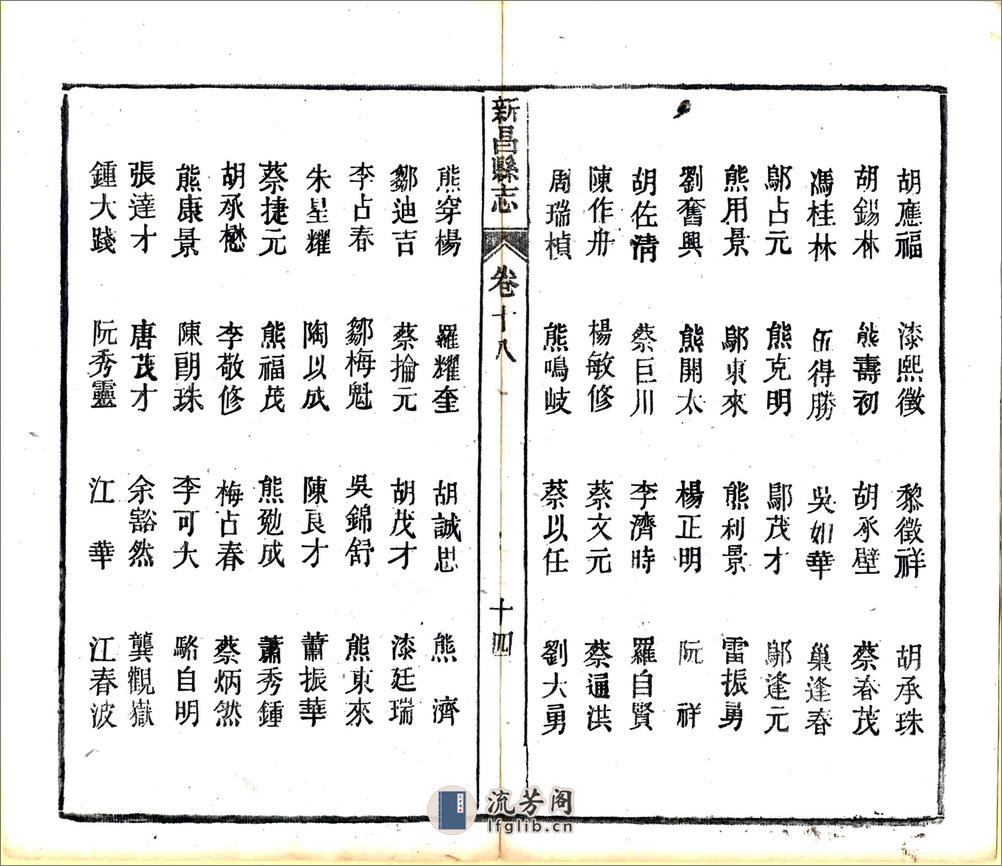 胡應福 漆熙徵 黎徵祥 胡承珠
胡錫林 熊壽初 胡承壁 蔡春茂
馮桂林 伍得勝 吳如華 巢逢春
鄔占元 熊克明 鄔茂才 鄔逢元
熊用景 鄔東來 熊利景 雷振勇
劉奮興 熊開太 楊正明 阮祥
胡佐清 蔡巨川 李濟時 羅自賢
陳作舟 楊敏修 蔡文元 蔡逼洪
周瑞楨 熊鳴岐 蔡以任 劉大勇
新昌縣志 卷十八 十四
熊穿楊 羅耀奎 胡誠思 熊濟
鄒迪吉 蔡掄元 胡茂才 漆廷瑞
李占春 鄒梅魁 吳錦舒 熊東來
朱星耀 陶以成 陳良才 蕭振華
蔡捷元 熊福茂 熊勉成 蕭秀鍾
胡承懋 李敬修 梅占春 蔡炳煞
熊康景 陳朗珠 李可大 駱自明
張達才 唐茂才 余豁然 龔觀嶽
鍾大踐 阮秀靈 江華 江春波
流芳阁
lfglib.cn